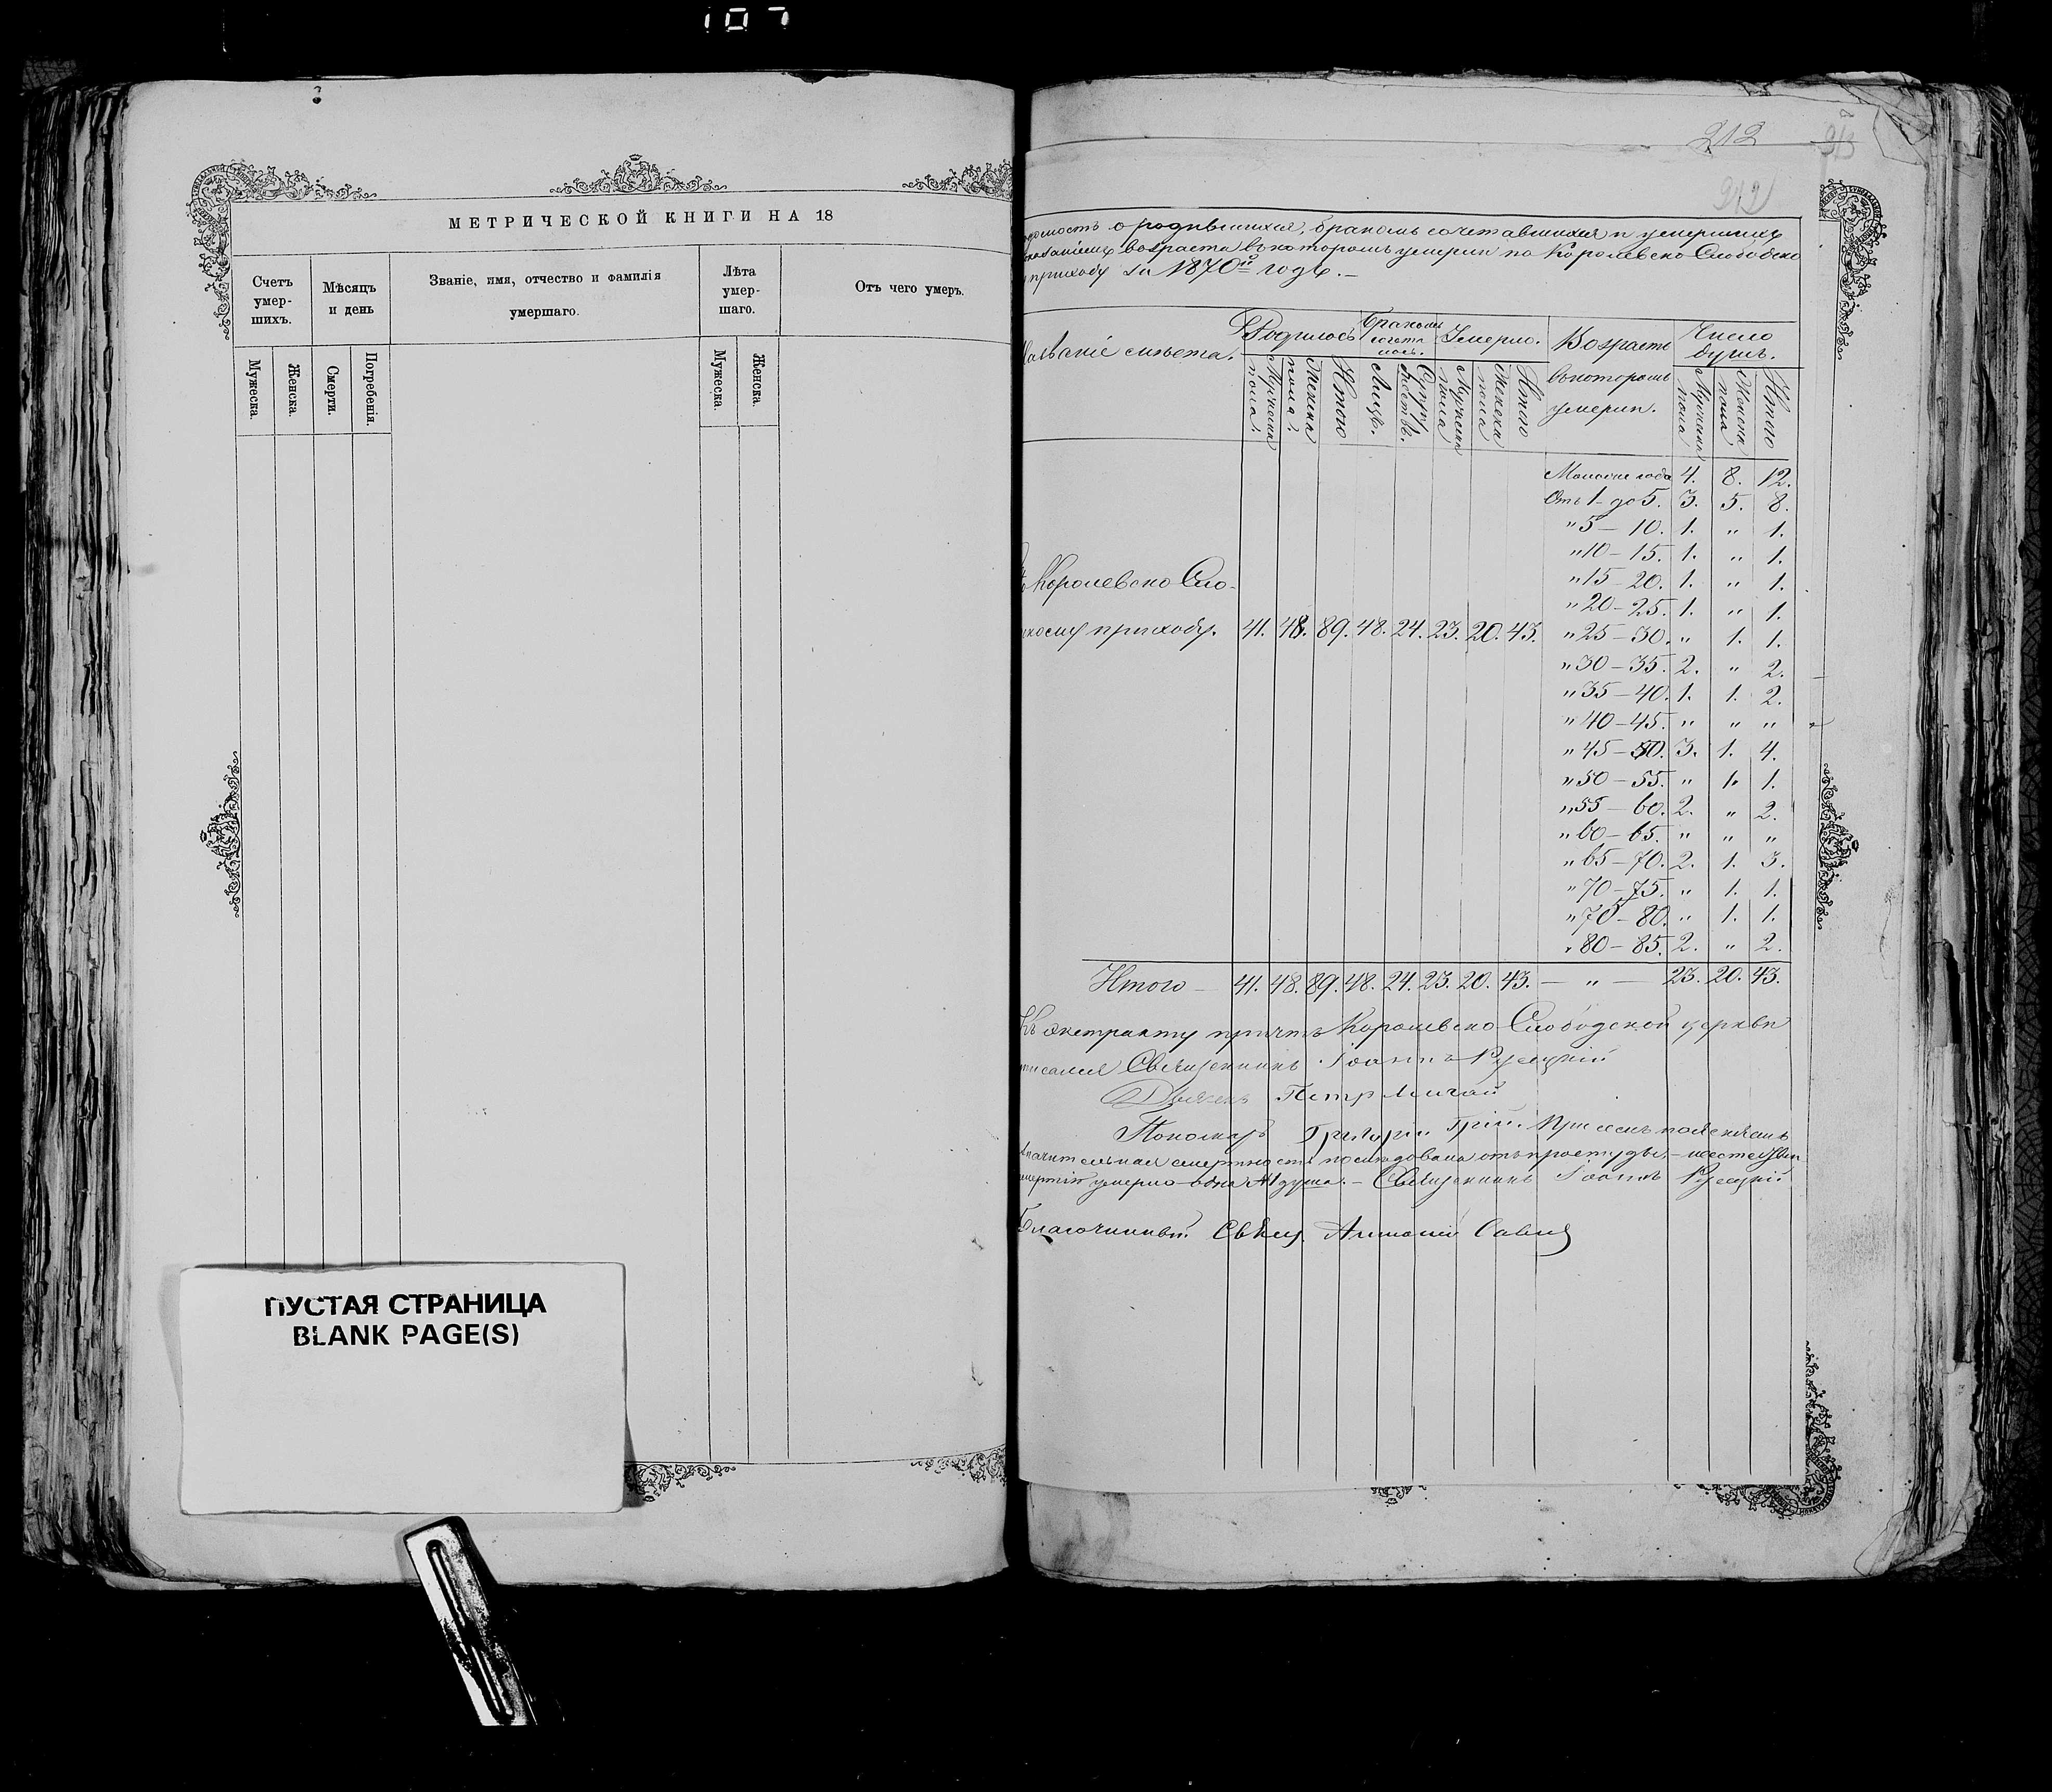 107
МЕТРИЧЕСКОЙ КНИГИ НА 18
Счетъ умер- шихъ.
Мѣсяцъ и день
Званіе, имя, отчество и фамилія умершаго.
Лѣта умер- шаго.
Отъ чего умеръ.
Мужеска.
Женска.
Смерти.
Погребенія.
Мужеска.
Женска.
ПУСТАЯ СТРАНИЦА
BLANK PAGE(S)
212
213
212
о родившихся, бракомъ сочетавшихся и умершихъ
возраста въ которомъ умерли по Королевско Слободско
приходу за 1870й годъ.–
мѣста. Родилось Бракомъ сочета лось. Умерло. Возрастъ Число душъ.
въ которомъ умерли.
Мужеска пола. Женска пола. Итого Лицъ. Супру жествъ. Мужеска пола Женска пола Итого Мужеска пола Женска пола Итого
года 4. 8. 12.
Отъ 1 – до 5. 3. 5. 8.
" 5 – 10. 1. " 1.
" 10 – 15. 1. " 1.
Королевско Сло-
" 15 – 20. 1. " 1.
" 20 – 25. 1. " 1.
приходу. 41. 48. 89. 48. 24. 23. 20. 43. " 25 – 30. " 1. 1.
" 30 – 35. 2. " 2.
" 35 – 40. 1. 1. 2.
" 40 – 45. " " "
" 45 – 50. 3. 1. 4.
" 50 – 55. " 1. 1.
" 55 – 60. 2. " 2.
" 60 – 65. " " "
" 65 – 70. 2. 1. 3.
" 70 – 75. " 1. 1.
" 75 – 80. " 1. 1.
" 80 – 85. 2. " 2.
Итого – 41. 48. 89. 48. 24. 23. 20. 43. – " – 23. 20. 43.
Къ экстракту причтъ Королевско Слободской церкви
Священникъ Іоаннъ
Дьяконъ Петр
Пономарь Григорій При семъ
смертность послѣдовала отъ простуды, –
умерло одна душа. – Священникъ Іоаннъ
Благочинный Свящ. Антоній